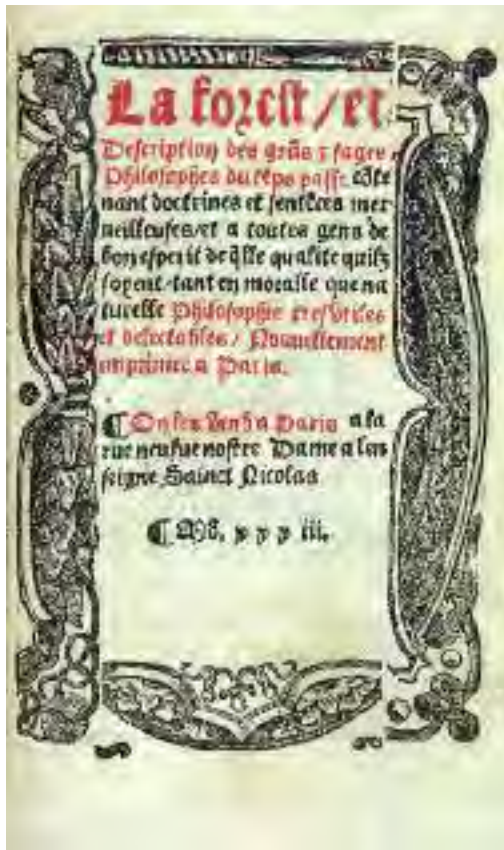 La forest/et
Description des grãs ⁊ sages
Philosophes du tẽps passe cõte
nant doctrines et sentẽces mer
ueilleuses/et a toutes gens de
bon esperit de q̃lle qualite quilz
soyent/tant en moralle que na
turelle Philosophie tresvtiles
et delectables/Nouuellement
imprimee a Paris.
¶On les vend a Paris a la
rue neufue nostre Dame a len
seigne Sainct Nicolas
¶ xxxiii.